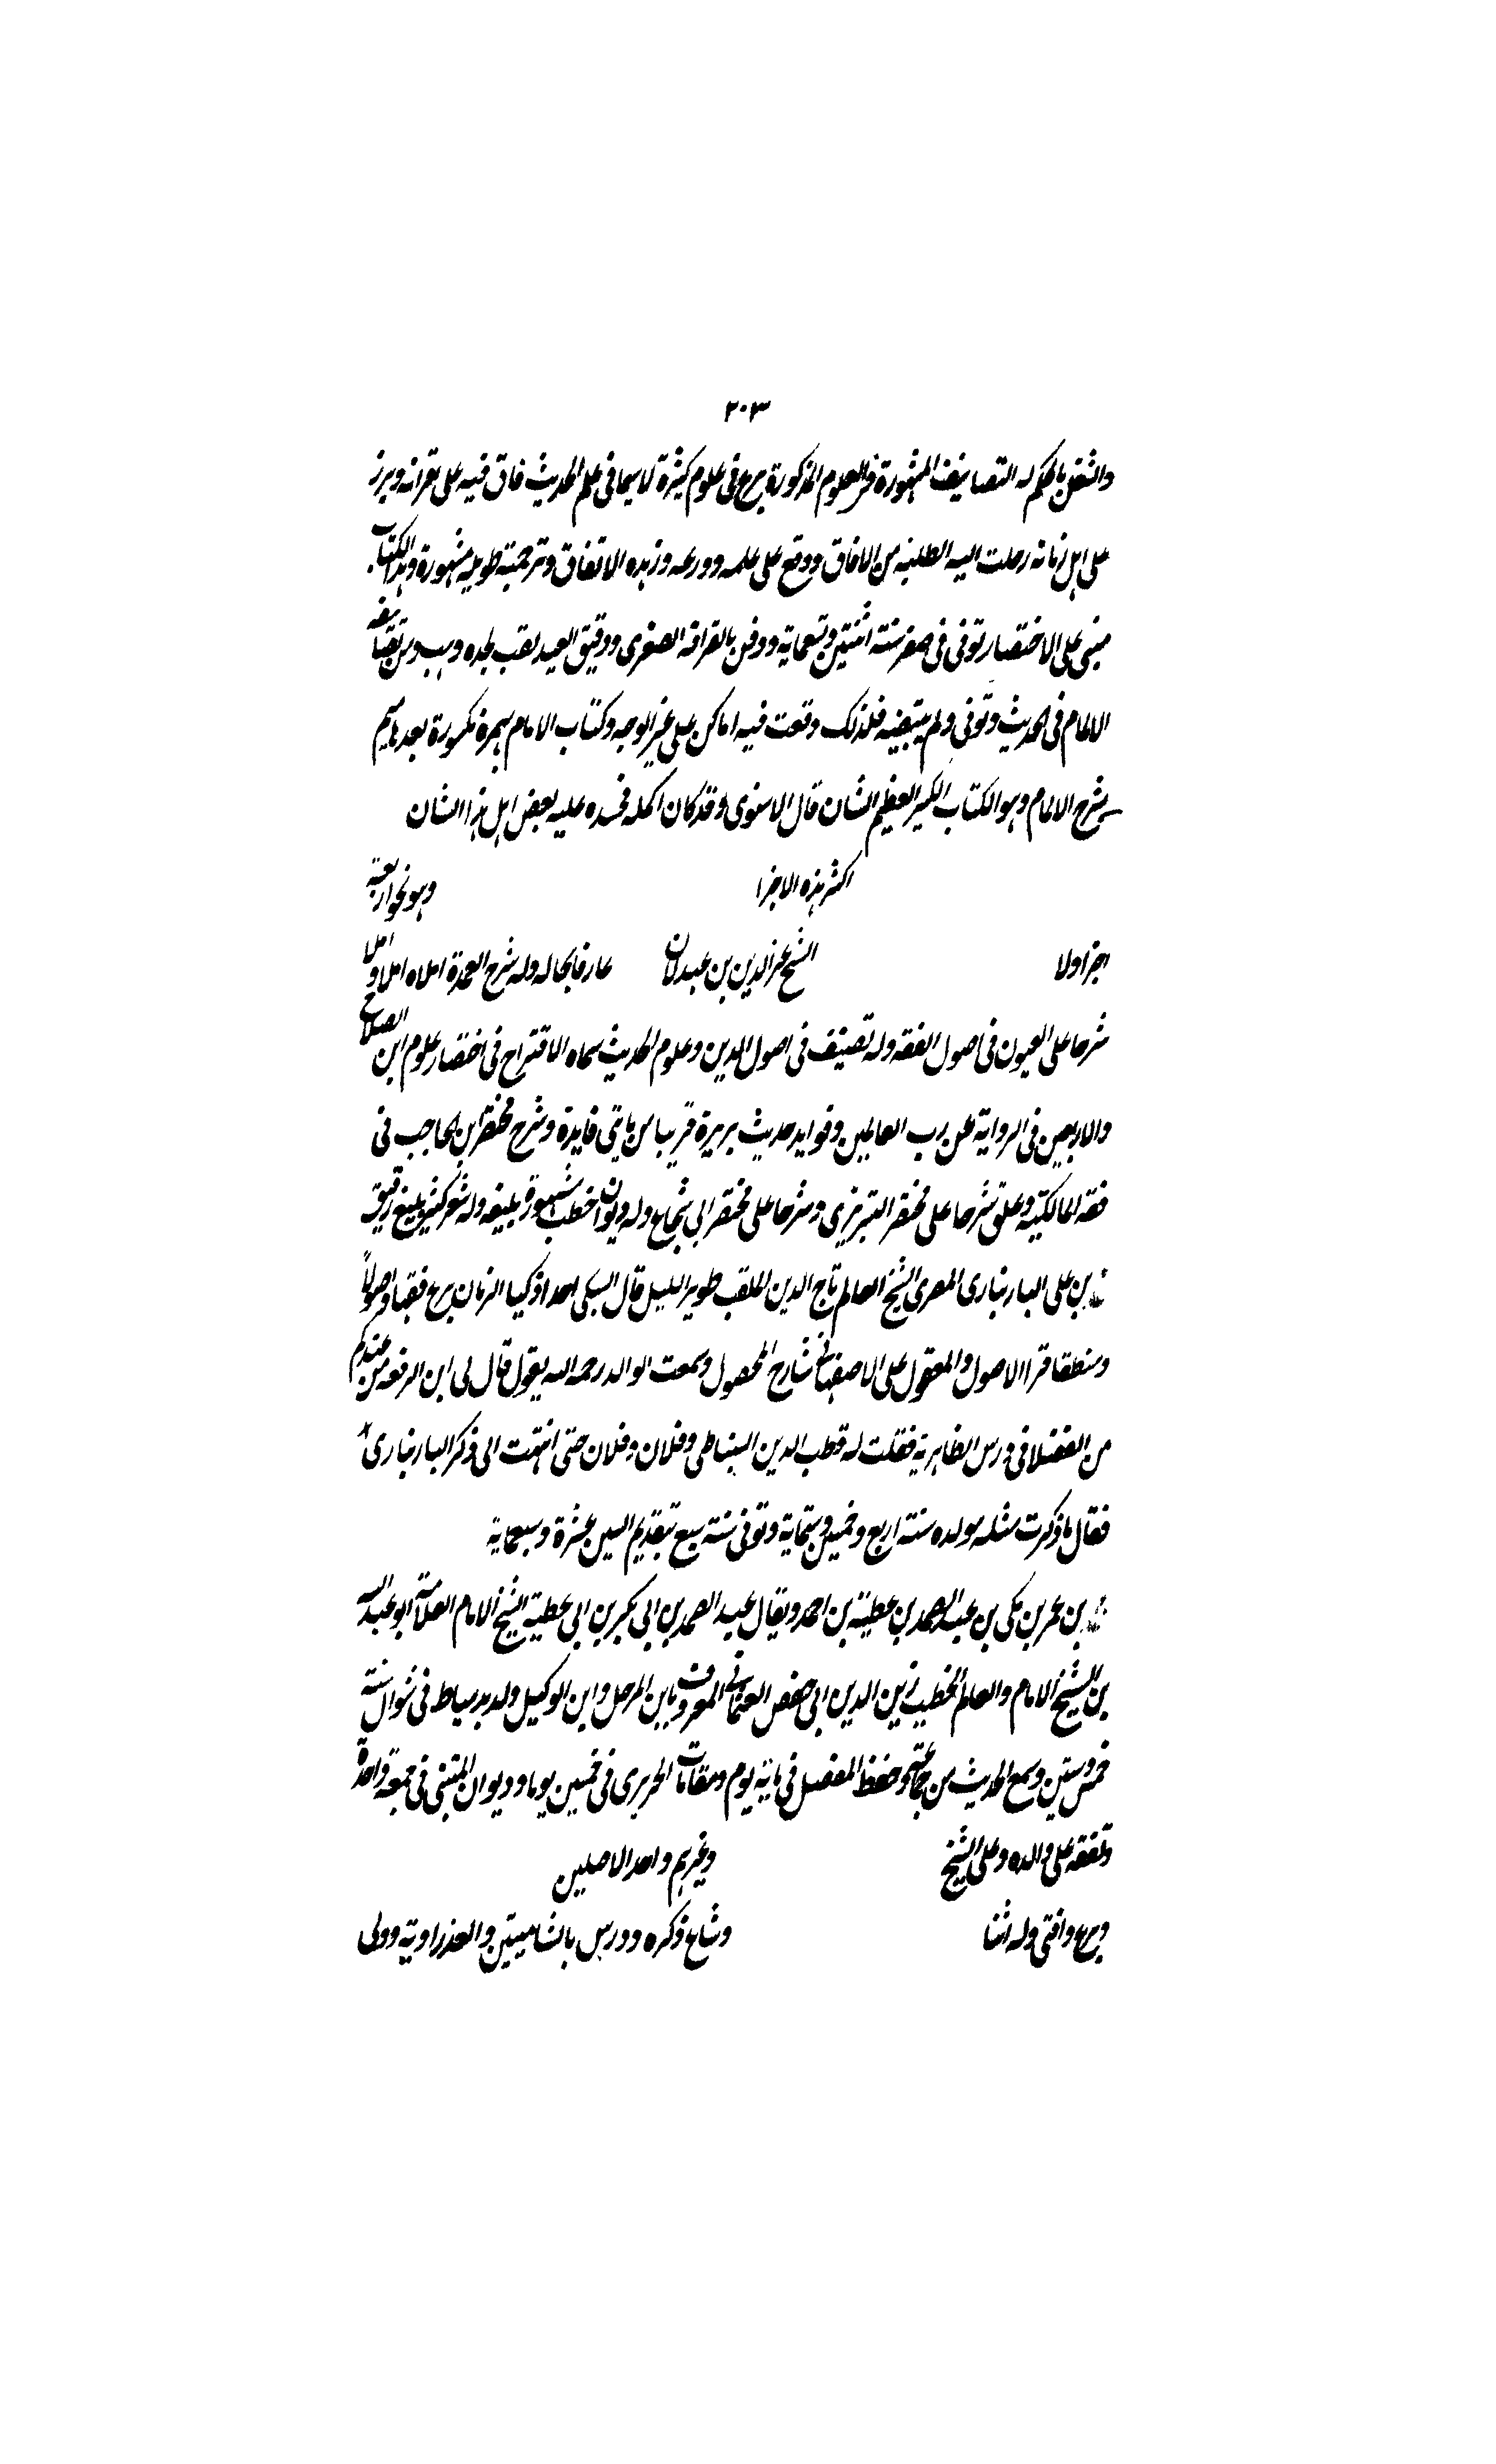 ٣٠٣
والتفنن بالحكم له التصانيف المشهورة في العلوم المذكورة برع في علوم كثيرة لا سيما في علم الحديث فاق فيه على اقرانه وبرز
على اهل زمانه رحلت اليه الطلبة من الافاق ووقع على علمه وورعه وزهده الاتفاق وترجمته طويلة مشهورة وهذا الكتاب
مبنى على الاختصار توفى فى صفر سنة اثنتين وتسعماية ودفن بالقرافة الصغرى ودقيق العيد لقب لجده وهب ومن تصانيفه
الالمام فى الحديث وتوفى ولم يبيضه فلذلك وقعت فيه اماكن على غير الوجه وكتاب الامام بهمزة مكسورة بعدها ميم
شرح الالمام وهو الكتاب الكبير العظيم الشان قال الاسنوى وقد كان اكمله فحسده عليه بعض اهل هذا الشان
اكثر هذه الاجزا وهو نحو اربعة
اجزا ولا الشيخ عز الدين بن عبدلان عارفا بحاله وله شرح العمدة املاه املا واملا
شرحا على العيون فى اصول الفقه وله تصنيف فى اصول الدين وعلوم الحديث سماه الاقتراح فى اختصار علوم ابن الصلاح
والاربعين فى الرواية عن رب العالمين وفوايد حديث بريرة قريبا من مايتى فايدة وشرح مختصر ابن الحاجب فى
فقه المالكية وعلق شرحا على مختصر التبريزى وشرحا على مختصر ابى شجاع وله ديوان خطب مشهورة بليغة وله شعر كثير بليغ رقيق
بن على البارنبارى المصرى الشيخ العالم تاج الدين الملقب طوير الليل قال السبكى احد اذكيا الزمان برع فقها واصولاً
ومنطقا قرا الاصول والمعقول على الاصفهانى شارح المحصول وسمعت الوالد رحمه الله يقول قال لى ابن الرفعة من عندكم
من الفضلا فى درس الظاهرية فقلت له قطب الدين السنباطى وفلان وفلان حتى انتهت الى ذكر البارنبارى
فقال ما ذكرت مثله مولده سنة اربع وخمسين وستماية وتوفى سنة سبع بتقديم السين عشرة وسبعماية
بن عمر بن مكى بن عبد الصمد بن عطية بن احمد ويقال عبد الصمد بن ابى بكر بن ابى عطية الشيخ الامام العلامة ابو عبد الله
بن الشيخ الامام والعالم الخطيب زين الدين ابى حفص العثمانى المعروف بابن المرحل وابن الوكيل ولد بدمياط فى شوال سنة
خمس وستين وسمع الحديث من جماعة وحفظ المفصل فى ماية يوم ومقامات الحريرى فى خمسين يوما وديوان المتنبى فى جمعة واحدة
وتفقه على والده وعلى الشيخ وغيرهم واحد الاصلين
وبرع وافتى وله اثنا وشاع ذكره ودرس بالشاميتين والعذراوية وولى